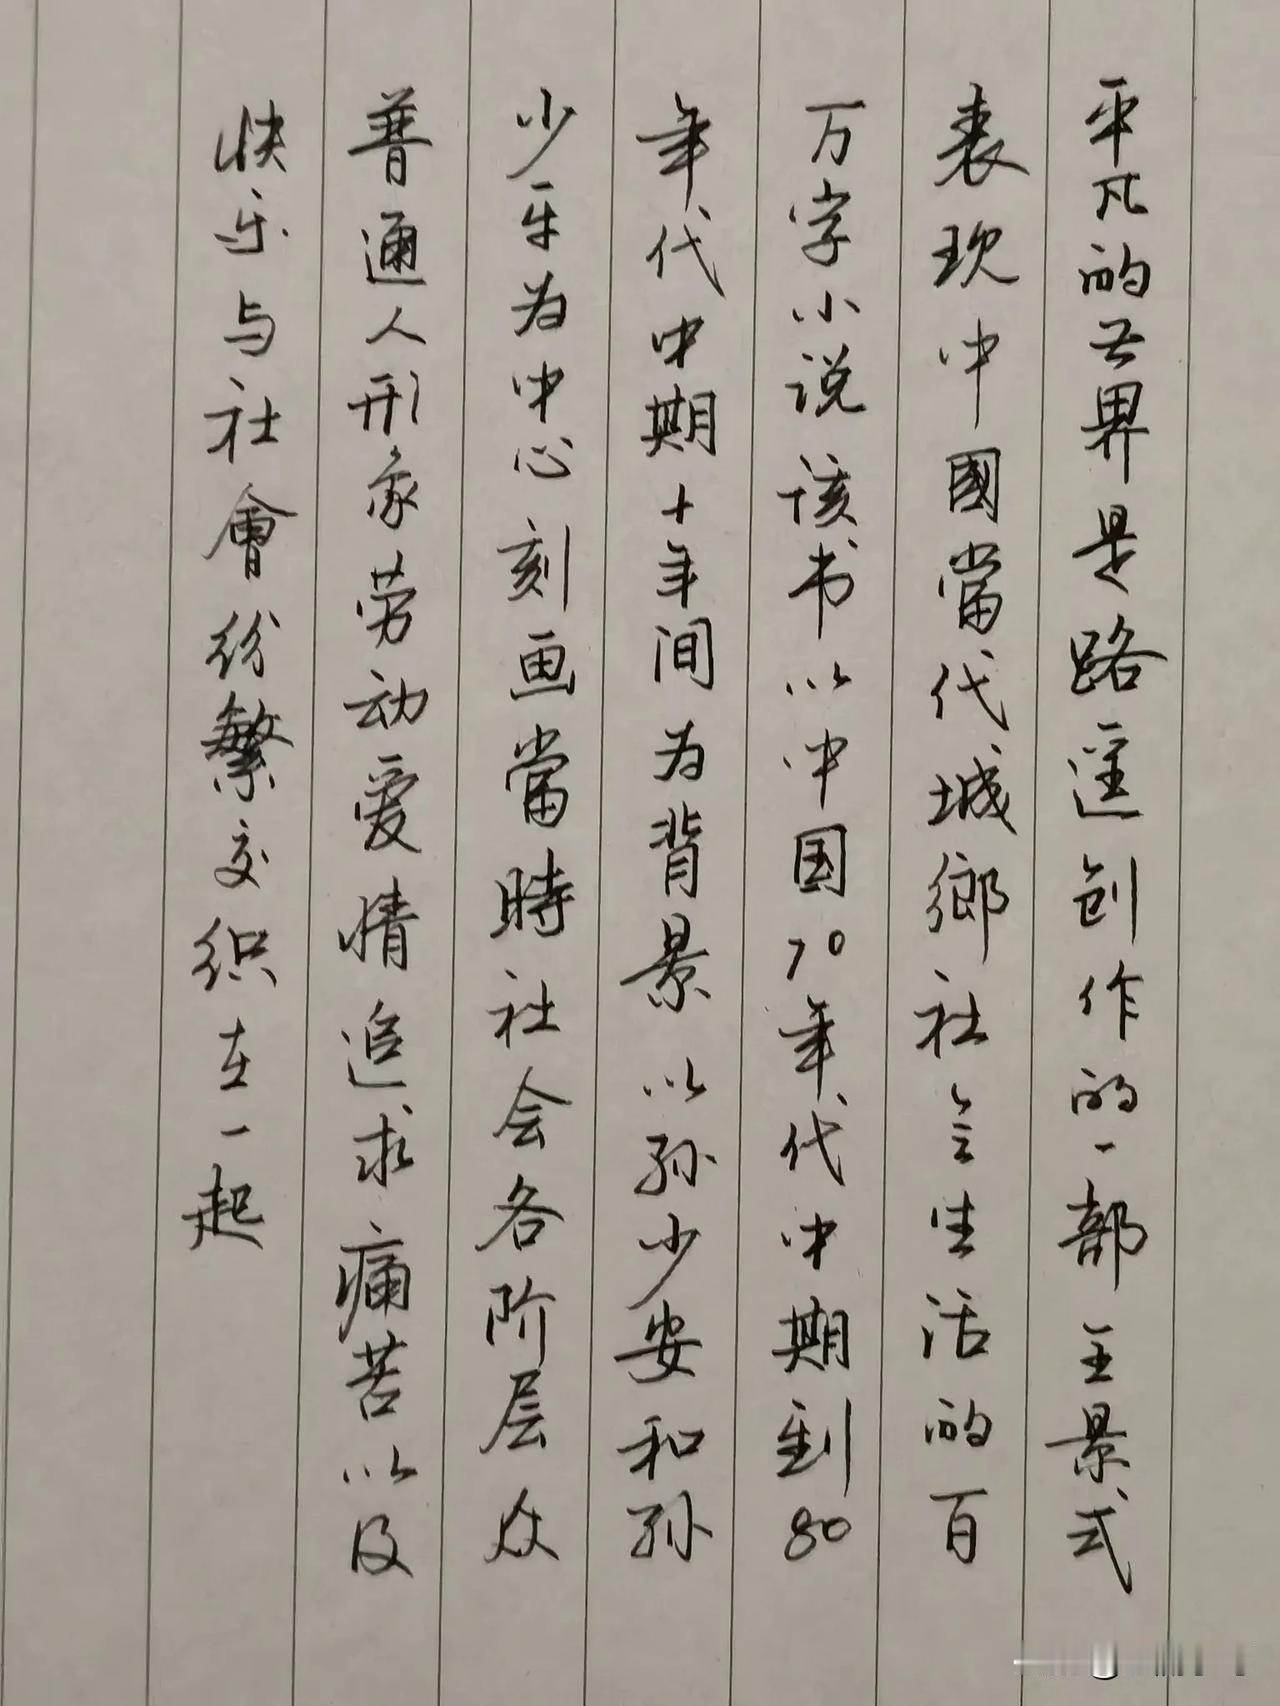 平凡的世界是路遥创作的一部主景式
表现中國當代城鄉社会生活的百
万字小说该书以中国70年代中期到80
年代中期十年间为背景以孙少安和孙
少平为中心刻画當時社会各阶层众
普通人形象劳动爱情追求痛苦以及
快乐与社會纷繁交织在一起